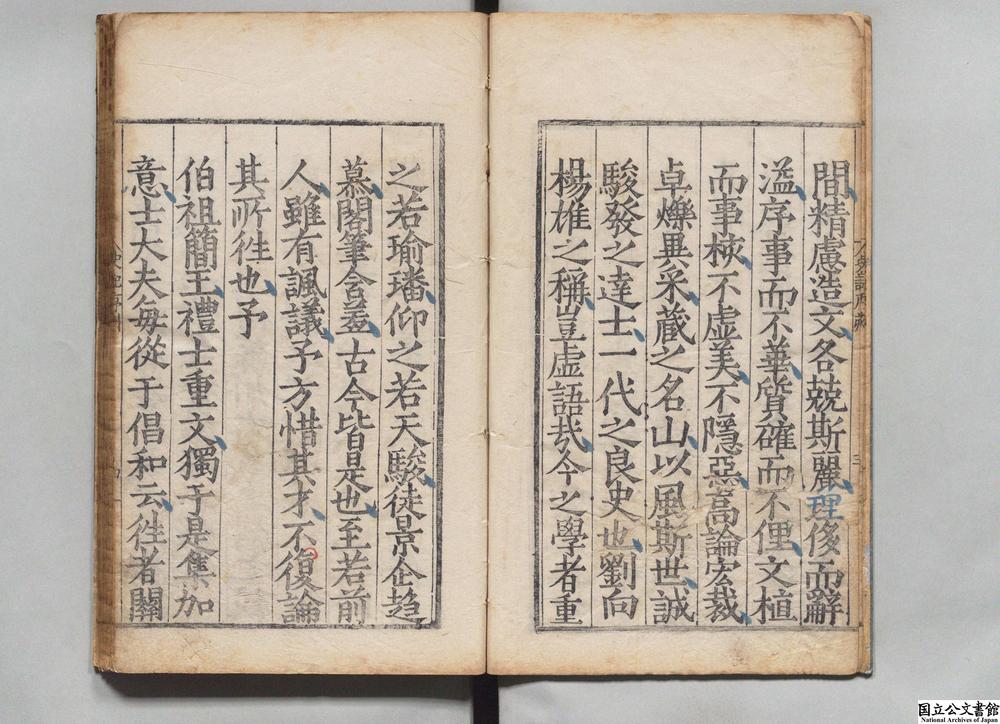 間精慮造文各競斯麗理後而辭
溢序事而不華質確而不俚文植
而事核不虛美不隱惡高論宏裁
卓爍異采藏之名山以風斯世誠
駿發之達士一代之良史也劉向
楊雄之稱豈虛語哉今之學者重
之若瑜璠仰之若天駿徒景企趋
慕閣筆含羞古今皆是也至若前
人雖有諷議予方惜其才不復論
其所徃也予
伯祖簡王禮士重文獨于是集加
意士大夫每從于倡和云徃者關
国立公文書館
National Archives of Japan